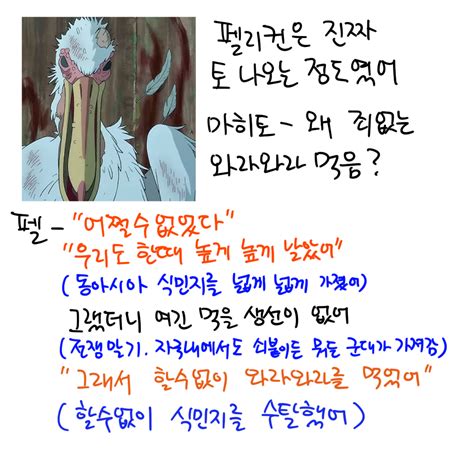 펠리컨은 진짜
토 나오는 정도였어
마히토 - 왜 죄없는
와라와라 먹음?
펠 - "어쩔수없었다"
"우리도 한때 높게 높게 날았어"
(동아시아 식민지를 넓게 넓게 가졌어)
그랬더니 여긴 먹을 생선이 없어
(전쟁말기. 자국내에서도 쇠붙이든 뭐든 군대가 가져감)
"그래서 할수없이 와라와라를 먹었어"
(할수없이 식민지를 수탈했어)